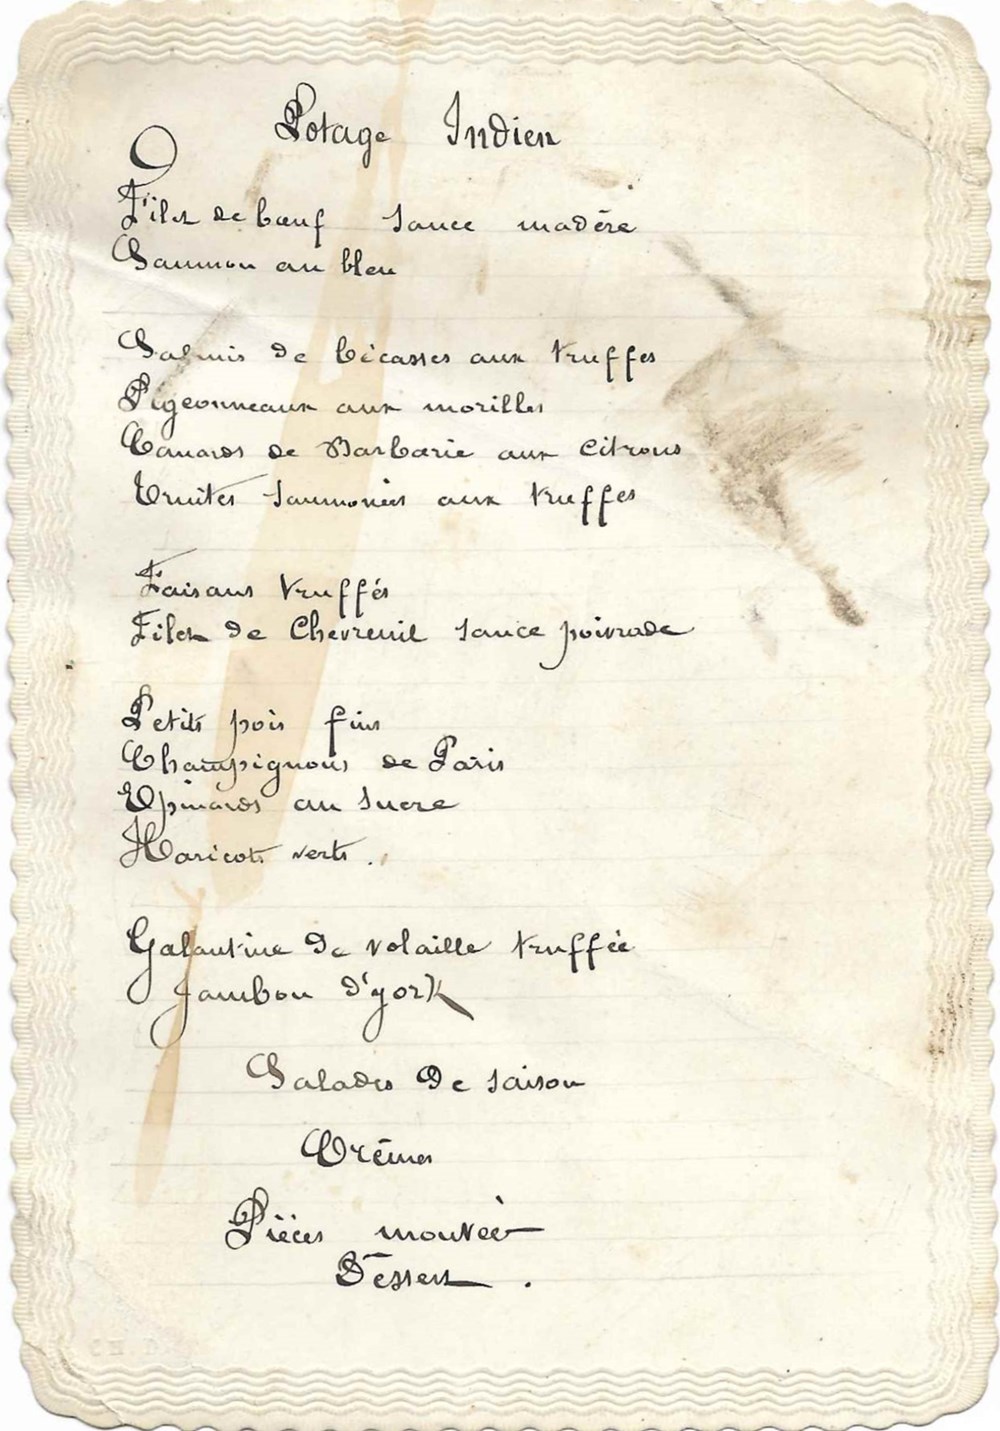 Potage Indien
Filet de bœuf sauce madère
Saumon au bleu
Salmis de bécasses aux truffes
Pigeonneaux aux morilles
Canards de Barbarie aux citrons
Truites saumonées aux truffes
Faisans truffés
Filet de Chevreuil sauce poivrade
Petits pois fins
Champignons de Paris
Epinards au sucre
Haricots verts.
Galantine de volaille truffée
Jambon d'york
Salades de saison
Crêmes
Pièces montées
Dessert.